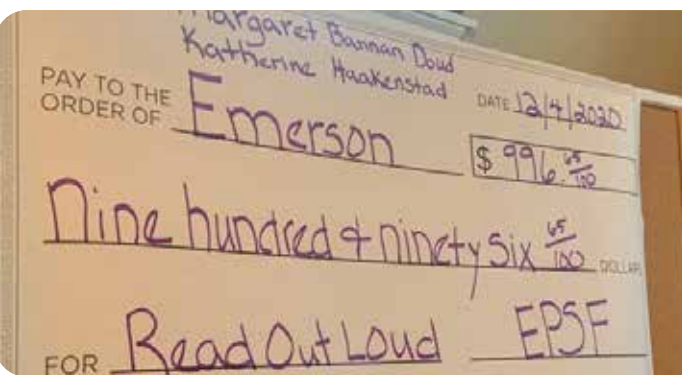 Margaret Bannan Doud
Katherine Haakenstad
PAY TO THE
ORDER OF Emerson
DATE 12/4/2020
$ 996.65/100
Nine hundred & ninety six 65/100 DOLLARS
FOR Read Out Loud EPSF